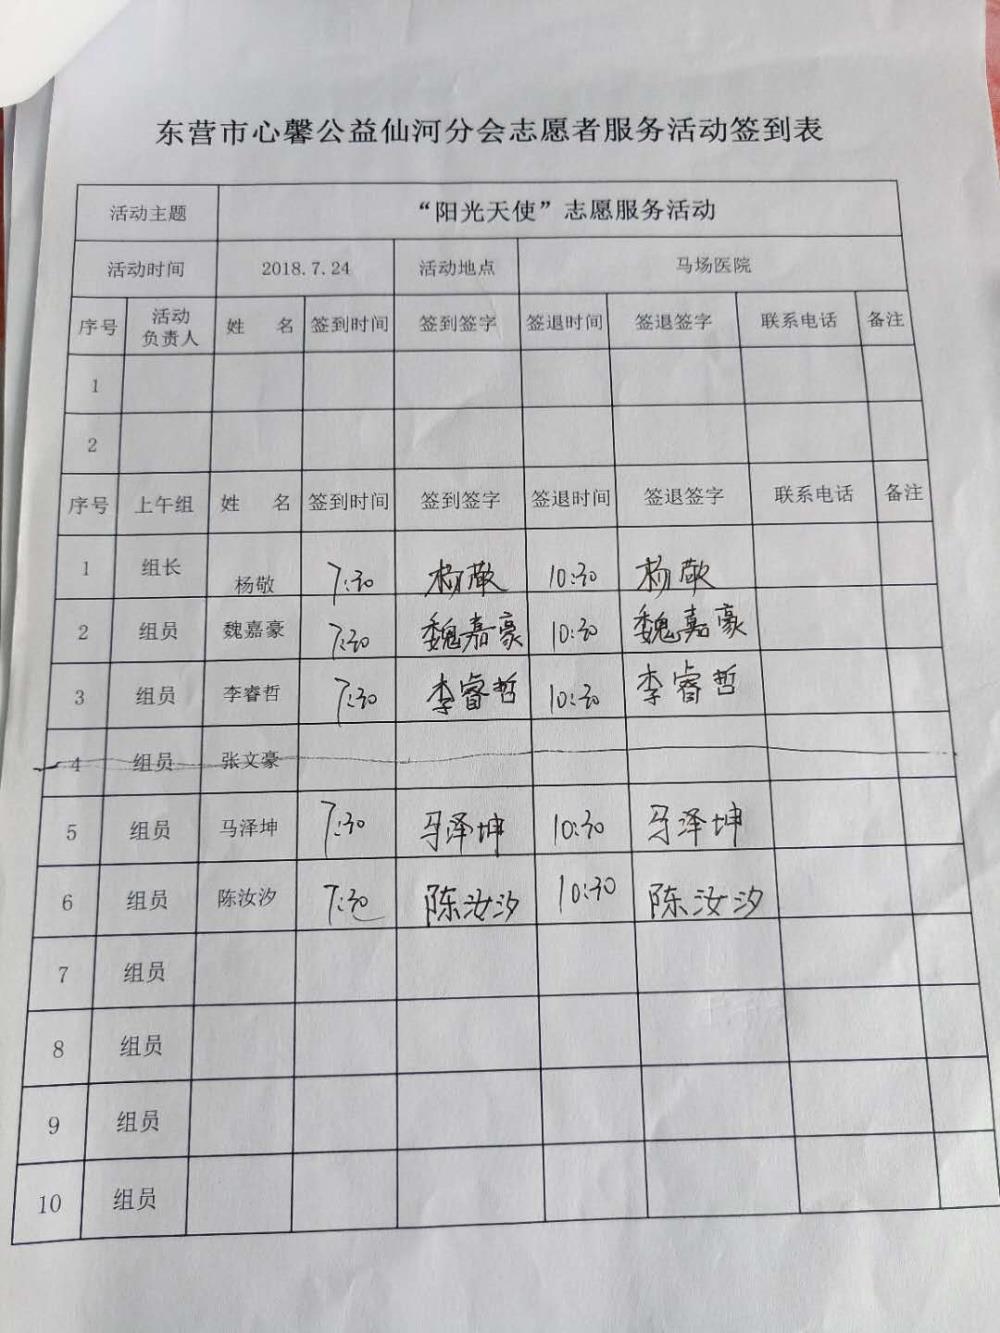 东营市心馨公益仙河分会志愿者服务活动签到表
活动主题 “阳光天使”志愿服务活动
活动时间 2018.7.24 活动地点 马场医院
序号 活动负责人 姓 名 签到时间 签到签字 签退时间 签退签字 联系电话 备注
1
2
序号 上午组 姓 名 签到时间 签到签字 签退时间 签退签字 联系电话 备注
1 组长 杨敬 7:30 杨敬 10:30 杨敬
2 组员 魏嘉豪 7:30 魏嘉豪 10:30 魏嘉豪
3 组员 李睿哲 7:30 李睿哲 10:30 李睿哲
4 组员 张文豪
5 组员 马泽坤 7:30 马泽坤 10:30 马泽坤
6 组员 陈汝汐 7:30 陈汝汐 10:30 陈汝汐
7 组员
8 组员
9 组员
10 组员